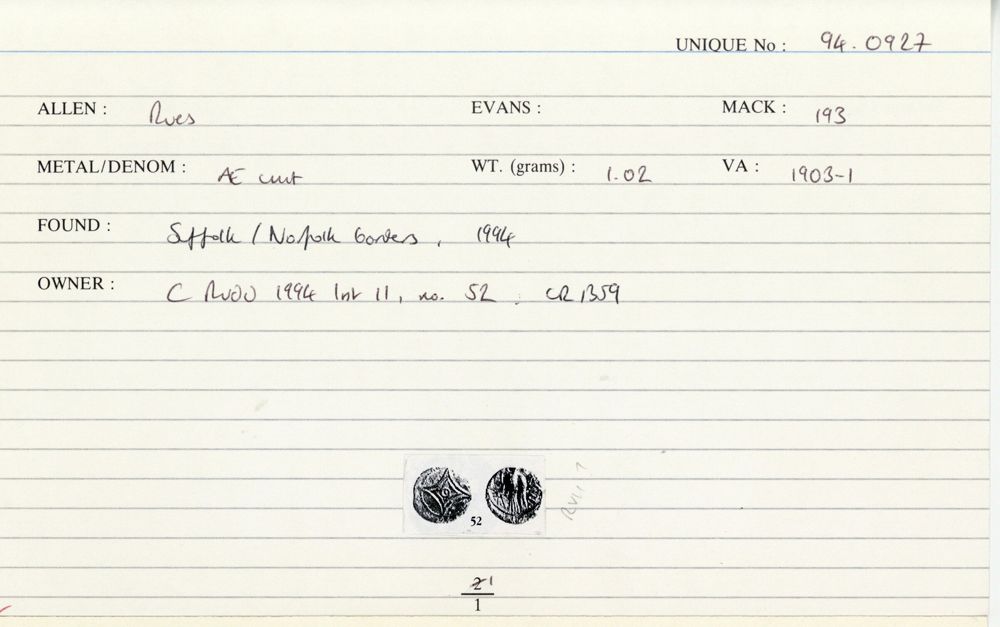 UNIQUE No : 94.0927
ALLEN : Rues EVANS : MACK : 193
METAL/DENOM : Æ unit WT. (grams) : 1.02 VA : 1903-1
FOUND : Suffolk / Norfolk borders, 1994
OWNER : C Rudd 1994 list 11, no. 52 : CR 1359
52
RVII ?
2 1
1